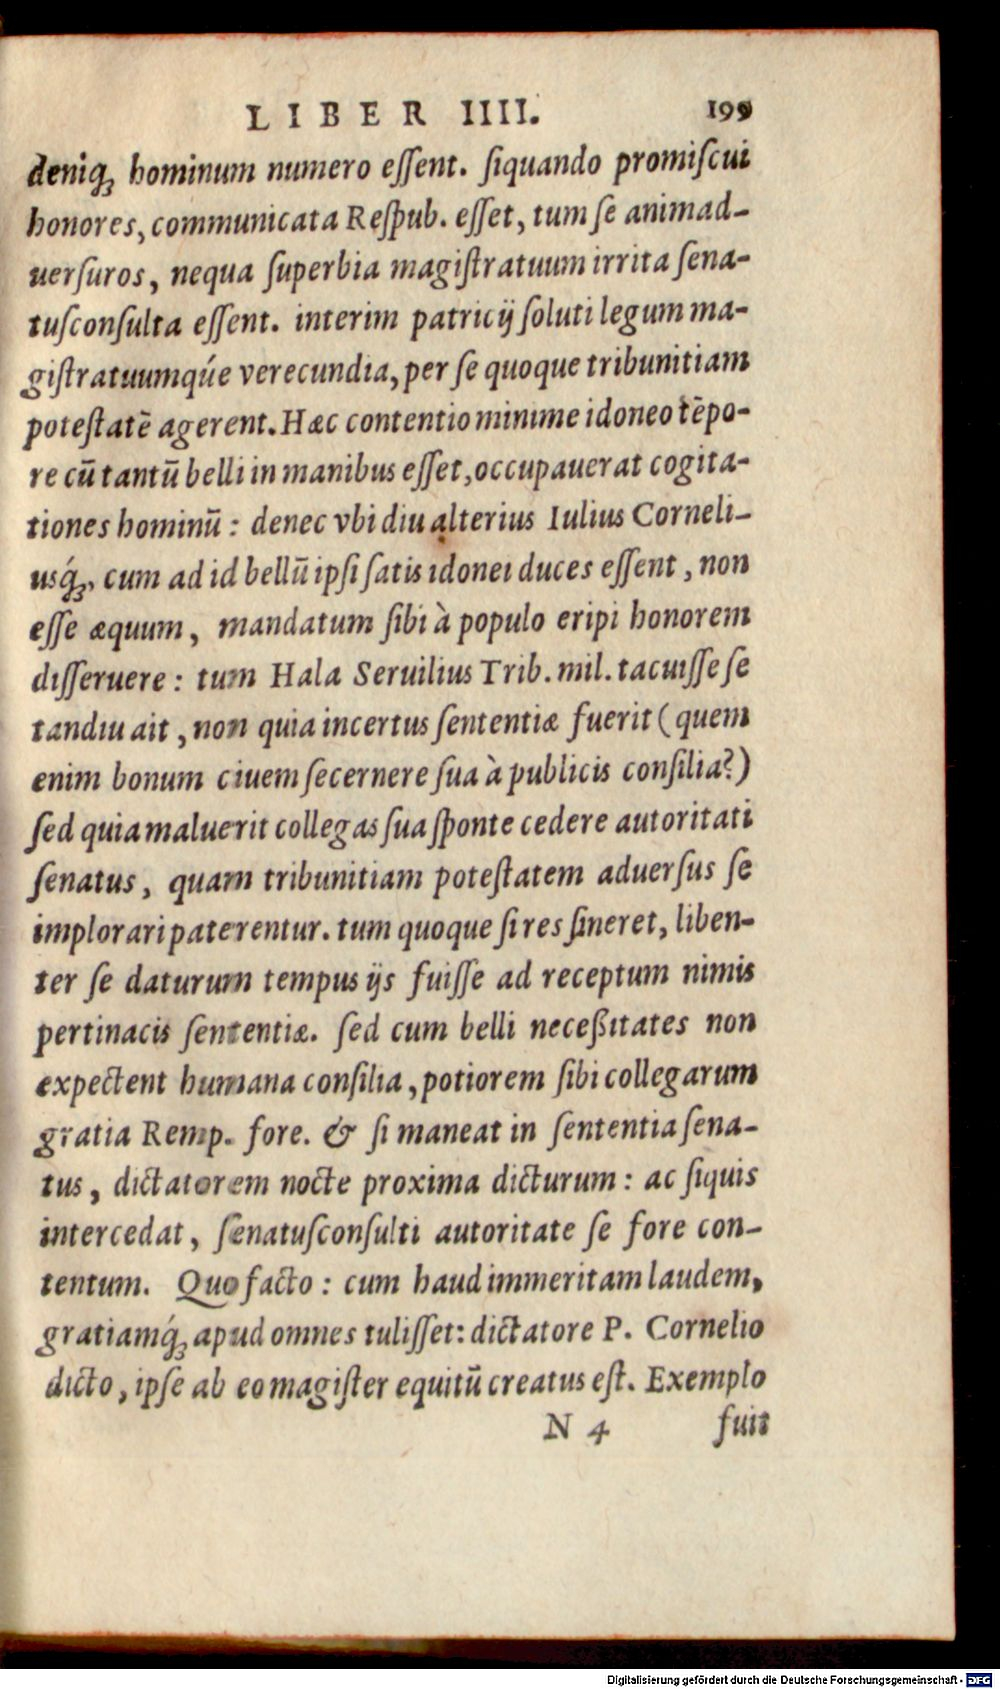 LIBER IIII. 199
deniq; hominum numero eſſent. ſiquando promiſcui
honores, communicata Reſpub. eſſet, tum ſe animad-
uerſuros, nequa ſuperbia magiſtratuum irrita ſena-
tuſconſulta eſſent. interim patricij ſoluti legum ma-
giſtratuumqúe verecundia, per ſe quoque tribunitiam
poteſtatē agerent. Hæc contentio minime idoneo tēpo-
re cū tantū belli in manibus eſſet, occupauerat cogita-
tiones hominū: denec vbi diu alterius Iulius Corneli-
usq́;, cum ad id bellū ipſi ſatis idonei duces eſſent, non
eſſe æquum, mandatum ſibi à populo eripi honorem
diſſeruere: tum Hala Seruilius Trib. mil. tacuiſſe ſe
tandiu ait, non quia incertus ſententiæ fuerit (quem
enim bonum ciuem ſecernere ſua à publicis conſilia?)
ſed quia maluerit collegas ſua ſponte cedere autoritati
ſenatus, quam tribunitiam poteſtatem aduerſus ſe
implorari paterentur. tum quoque ſi res ſineret, liben-
ter ſe daturum tempus ijs fuiſſe ad receptum nimis
pertinacis ſententiæ. ſed cum belli neceßitates non
expectent humana conſilia, potiorem ſibi collegarum
gratia Remp. fore. & ſi maneat in ſententia ſena-
tus, dictatorem nocte proxima dicturum: ac ſiquis
intercedat, ſenatuſconſulti autoritate ſe fore con-
tentum. Quo facto: cum haud immeritam laudem,
gratiamq́; apud omnes tuliſſet: dictatore P. Cornelio
dicto, ipſe ab eo magiſter equitū creatus eſt. Exemplo
N 4 fuit
Digitalisierung gefördert durch die Deutsche Forschungsgemeinschaft - DFG